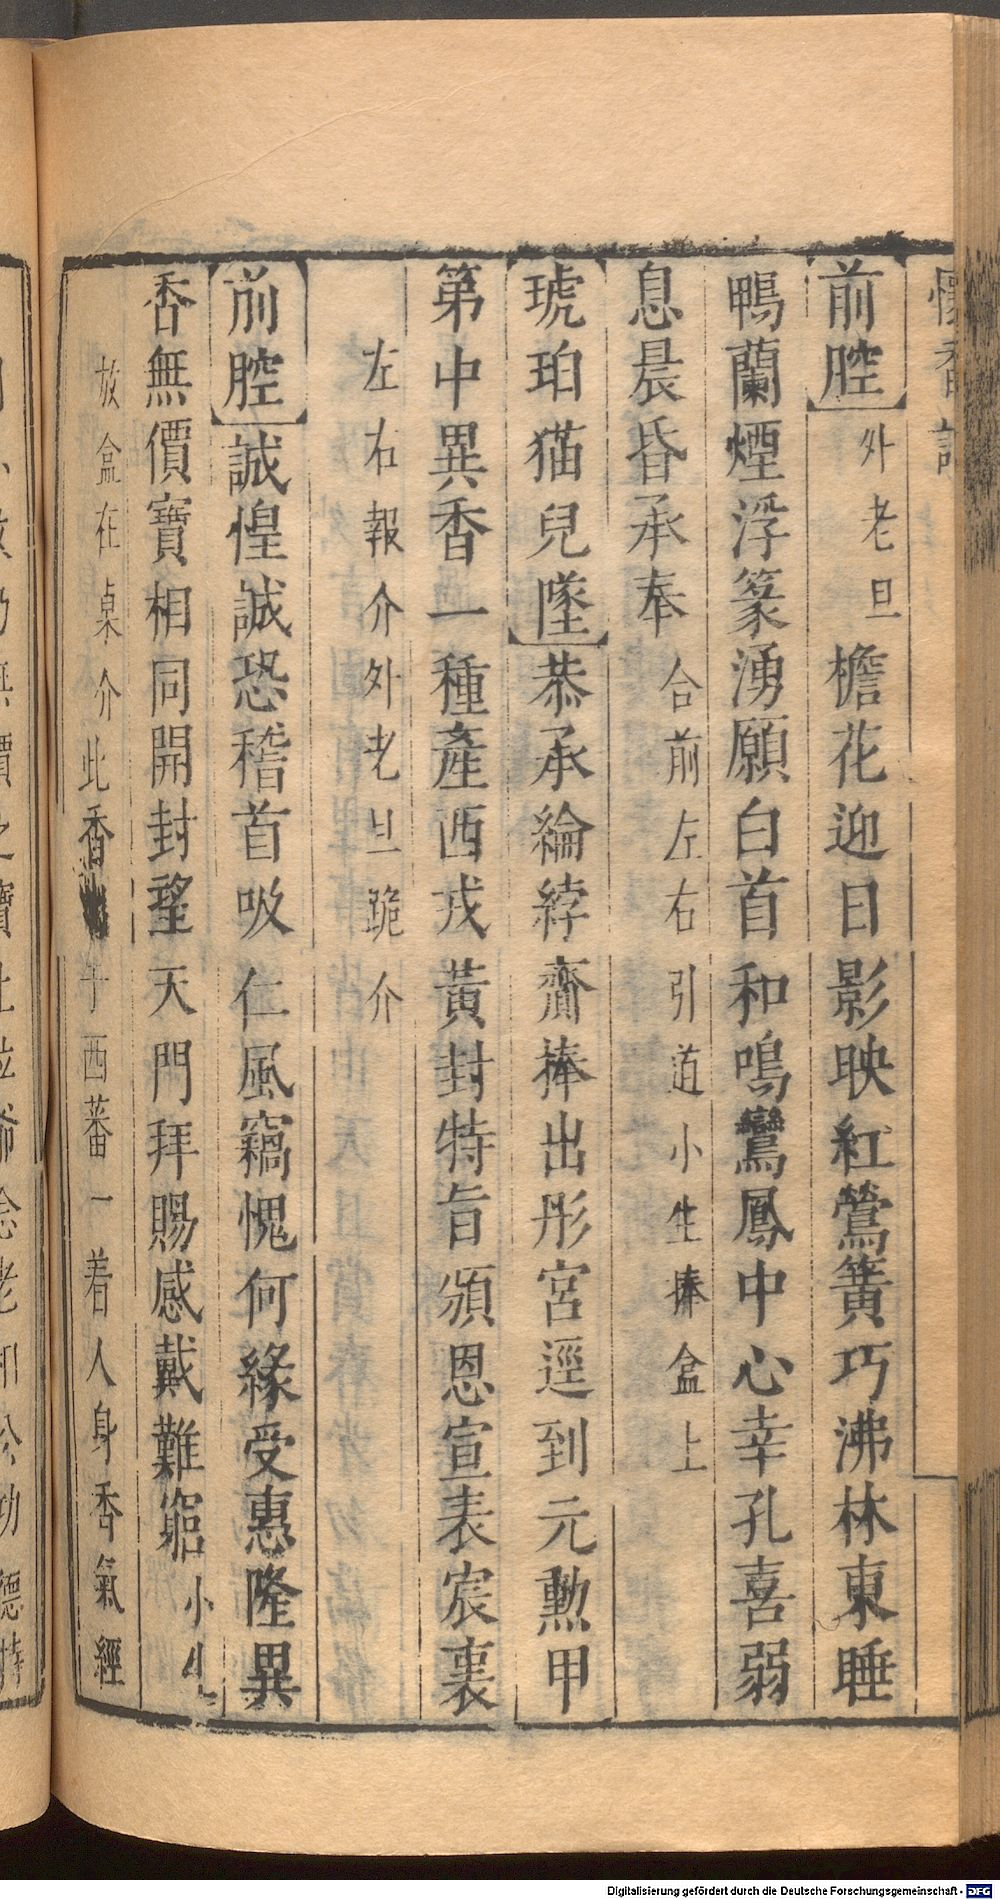 懷香記
前腔外老旦檐花迎日影映紅鶯簧巧沸林東睡
鴨蘭煙浮篆湧願白首和鳴鸞鳳中心幸孔喜弱
息晨昏承奉合前左右引道小生捧盒上
琥珀猫兒墜恭承綸綍齎捧出彤宮逕到元勲甲
第中異香一種產西戎黃封特旨頒恩宣表宸衷
左右報介外老旦跪介
前腔誠惶誠恐稽首吸仁風竊愧何緣受惠隆異
香無價寶相同開封望天門拜賜感戴難窮小生
放盒在桌介此香于西蕃一着人身香氣經
Digitalisierung gefördert durch die Deutsche Forschungsgemeinschaft - DFG